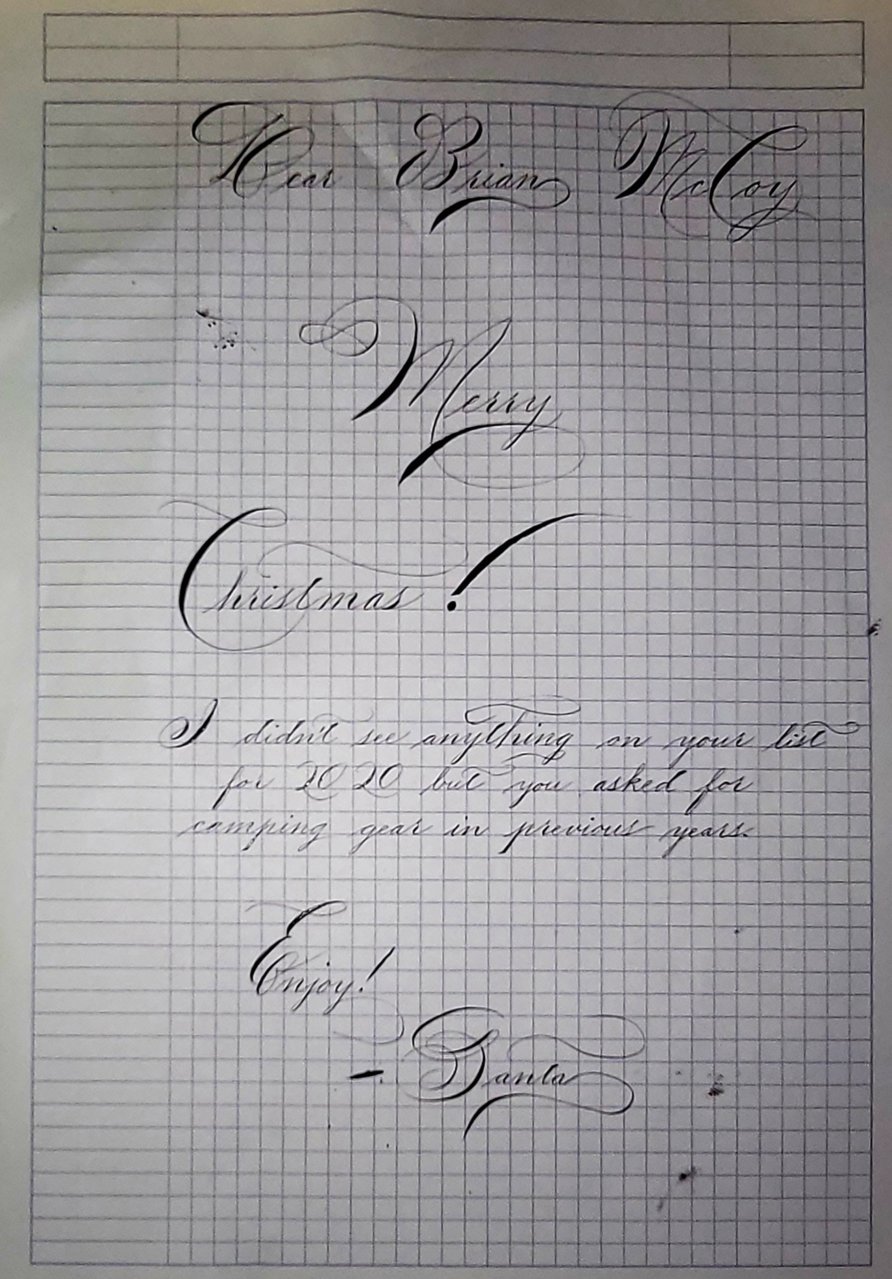 Dear Brian McCoy
Merry
Christmas!
I didn't see anything on your list
for 2020 but you asked for
camping gear in previous years.
Enjoy!
- Santa